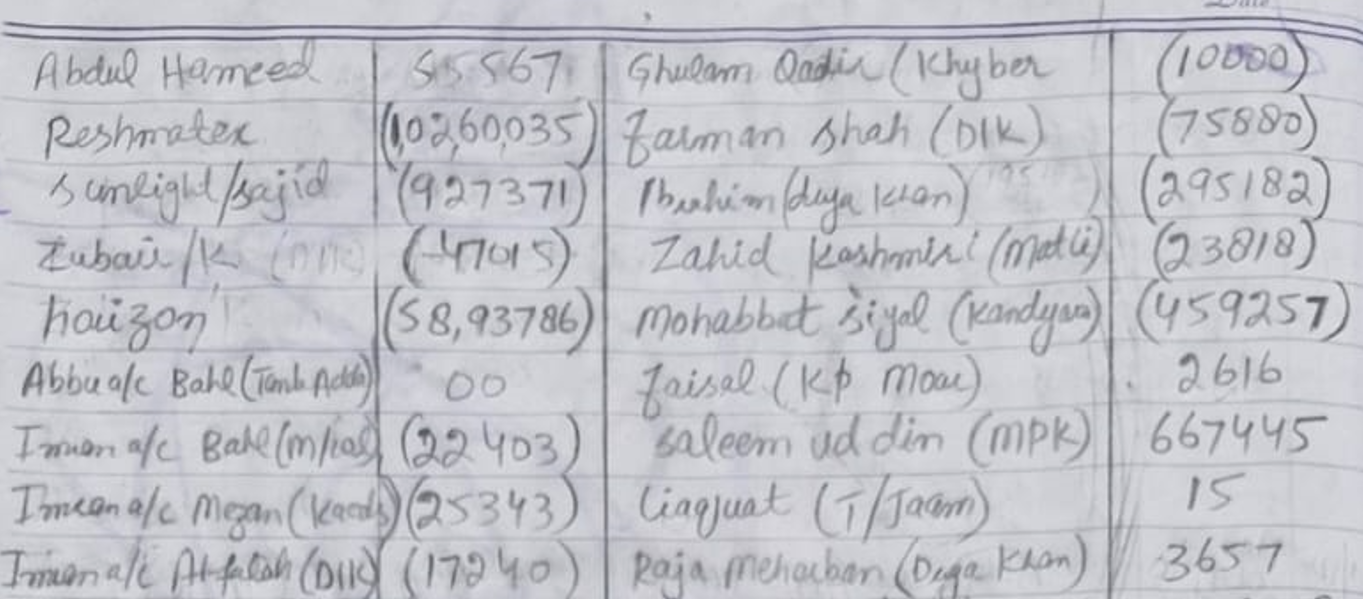 Abdul Hameed 55567 Ghulam Qadir (Khyber (10000)
Reshmatex (1,02,60,035) Farman Shah (DIK) (75880)
Sunlight/Sajid (927371) Ibrahim (duya Khan) (295182)
Zubair/K (47015) Zahid Kashmiri (Matli) (23818)
hoizon (58,93786) Mohabbat Siyal (Kandyaro) (459257)
Abbu a/c Bahl (Tank Adda) 00 Faisal (KP Moar) 2616
Imran a/c Bahl (22403) Saleem ud din (MPK) 667445
Imran a/c Mezan (25343) Liaquat (T/Jaam) 15
Imran a/c Al-falah (DIK) (17240) Raja Meharban (Duya Khan) 3657